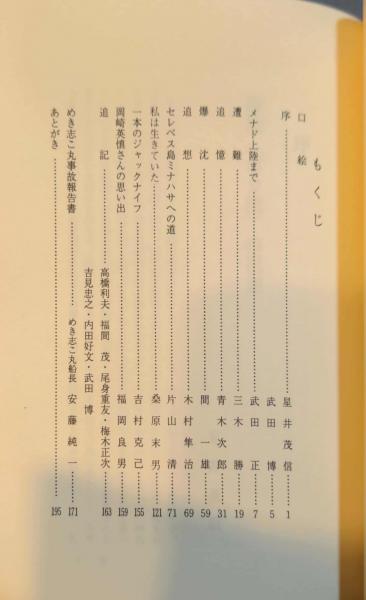 もくじ
口絵
序……………星井茂信…1
武田博…5
メナド上陸まで……………武田正…7
遭難……………三木勝…19
追憶……………青木次郎…31
爆沈……………間一雄…59
追想……………木村隼治…69
セレベス島ミナハサへの道……………片山清…71
私は生きていた……………桑原末男…121
一本のジャックナイフ……………吉村克己…155
岡崎英慎さんの思い出……………福岡良男…159
追記……………高橋利夫・福間茂・尾身重友・梅木正次…163
吉見忠之・内田好文・武田博
めき志こ丸事故報告書……………めき志こ丸船長 安藤純一…171
あとがき……………195